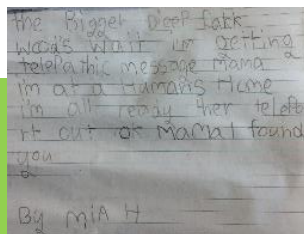 the Bigger Deep Dark
woods wait im getting
telepathic message mama
im at a Humans Home
i'm all ready her
it out of Mama I found
you
By MIA H